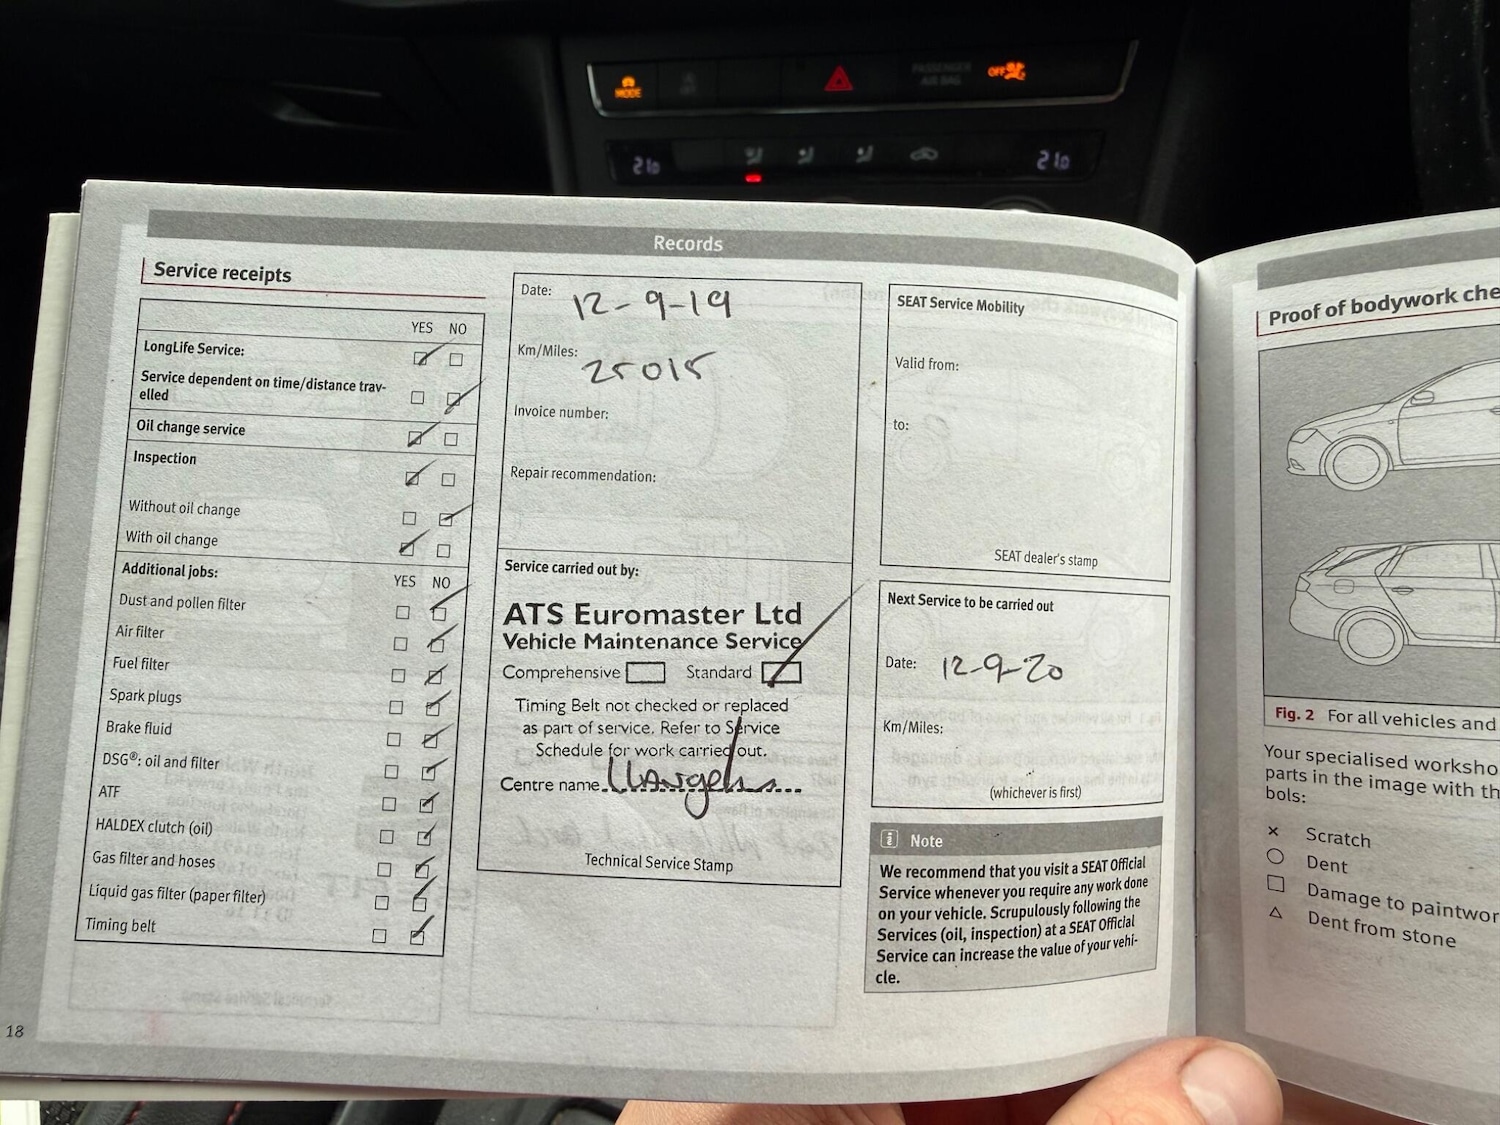 MODE
PASSENGER
AIR BAG
OFF
21.0
21.0
Records
Service receipts
YES NO
LongLife Service:
Service dependent on time/distance trav-
elled
Oil change service
Inspection
Without oil change
With oil change
Additional jobs:
YES NO
Dust and pollen filter
Air filter
Fuel filter
Spark plugs
Brake fluid
DSG®: oil and filter
ATF
HALDEX clutch (oil)
Gas filter and hoses
Liquid gas filter (paper filter)
Timing belt
18
Date: 12-9-19
Km/Miles: 25015
Invoice number:
Repair recommendation:
Service carried out by:
ATS Euromaster Ltd
Vehicle Maintenance Service
Comprehensive Standard
Timing Belt not checked or replaced
as part of service. Refer to Service
Schedule for work carried out.
Centre name
Technical Service Stamp
SEAT Service Mobility
Valid from:
to:
SEAT dealer's stamp
Next Service to be carried out
Date: 12-9-20
Km/Miles:
(whichever is first)
i Note
We recommend that you visit a SEAT Official
Service whenever you require any work done
on your vehicle. Scrupulously following the
Services (oil, inspection) at a SEAT Official
Service can increase the value of your vehi-
cle.
Proof of bodywork che
Fig. 2 For all vehicles and
Your specialised worksho
parts in the image with th
bols:
× Scratch
○ Dent
□ Damage to paintwor
△ Dent from stone